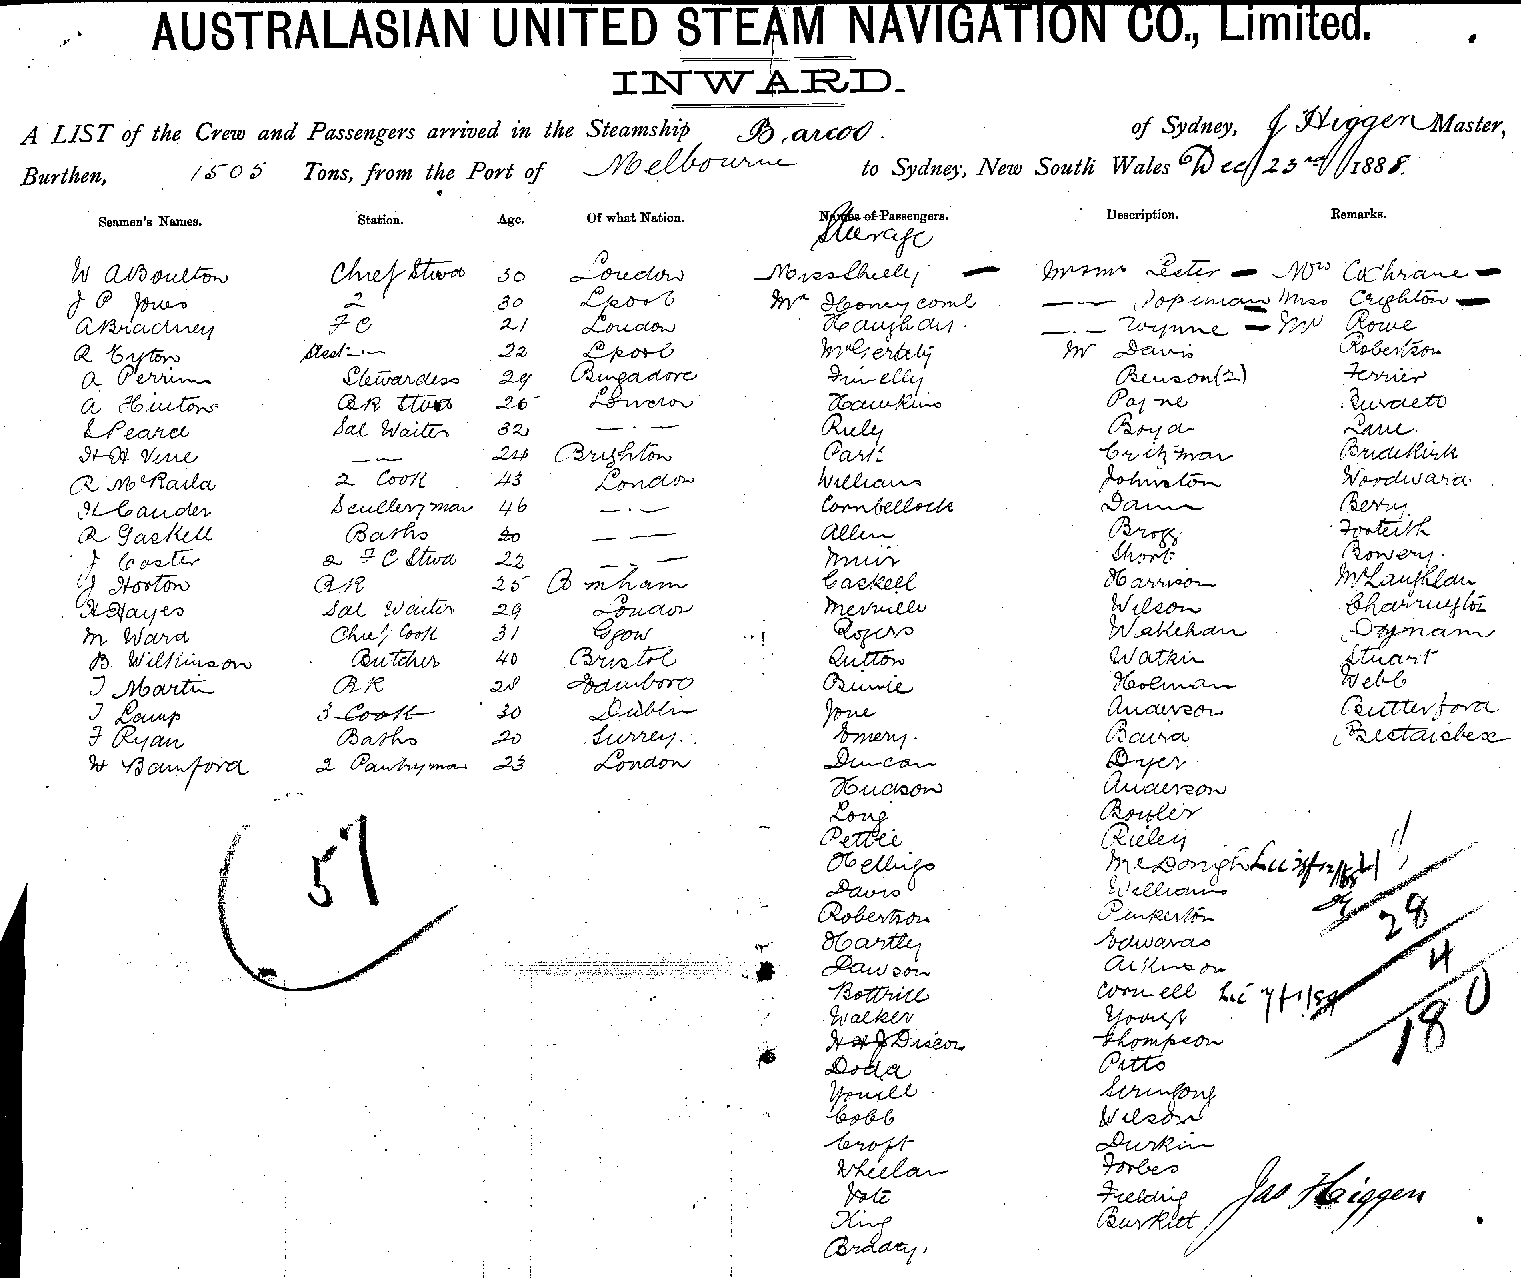 AUSTRALASIAN UNITED STEAM NAVIGATION CO., Limited.
INWARD.
A LIST of the Crew and Passengers arrived in the Steamship Barcoo. of Sydney, J Higgen Master,
Burthen, 1505 Tons, from the Port of Melbourne to Sydney, New South Wales Dec 23rd 1888.
Seamen's Names. Station. Age. Of what Nation. Names of Passengers. Description. Remarks.
Steerage
W A Boulton Chief Stwd 30 London Miss Lester - Mrs Cochrane -
J P Jones 2 30 Lpool Mr Honeycomb Miss Crighton -
A Bradney F C 21 London Wynne - Mr Rowe
R Eyton 22 Lpool Mr Davis Robertson
A Perrin Stewardess 29 Finelly Benson (2) Ferrier
A Hinton BR Stwd 25 London Hawkins Payne Burdett
S Pearce Sal Waiter 32 — · — Riely Boyd Lane
H H Vine — 24 Brighton Park Critzmar Bridekirk
R McRaila 2 Cook 43 London Williams Johnston Woodward
H Cauder Sculleryman 46 — · — Cornbellock Dann Berry
R Gaskell Baths 20 — — Allen Brogg Forteith
J Coster 2 F C Stwd 22 — — Muir Short Bowery.
J Horton BR 25 Gaskell Harrison McLaughlan
H Hayes Sal Waiter 29 London Merville Wilson Charrington
M Ward Chief Cook 31 Ggow Rogers Wakehan Dymam
B Wilkinson Butcher 40 Bristol Sutton Watkin Stuart
T Martin BR 28 Binnie Holman Webb
T Lamp 3 Cook 30 Dublin Jone Anderson Butterford
F Ryan Baths 20 Surrey. Emery. Baird
W Bamford 2 Pantryman 23 London Duncan Dyer
Hudson Anderson
Long Bouler
57
Pettie Rieley
Hellings McDonigh
Davis Williams
Robertson Pinkerton 28
Hartley Edwards
Dawson Atkinson 4
Bottrill Cornell
Walker 180
H & J Discon Thompson
Dodd Pitts
Youell
Cobb Wilson
Croft Durkin
Wheelan Forbes
Vote Fielding
King Burkitt
Jas Higgen
Bradey.